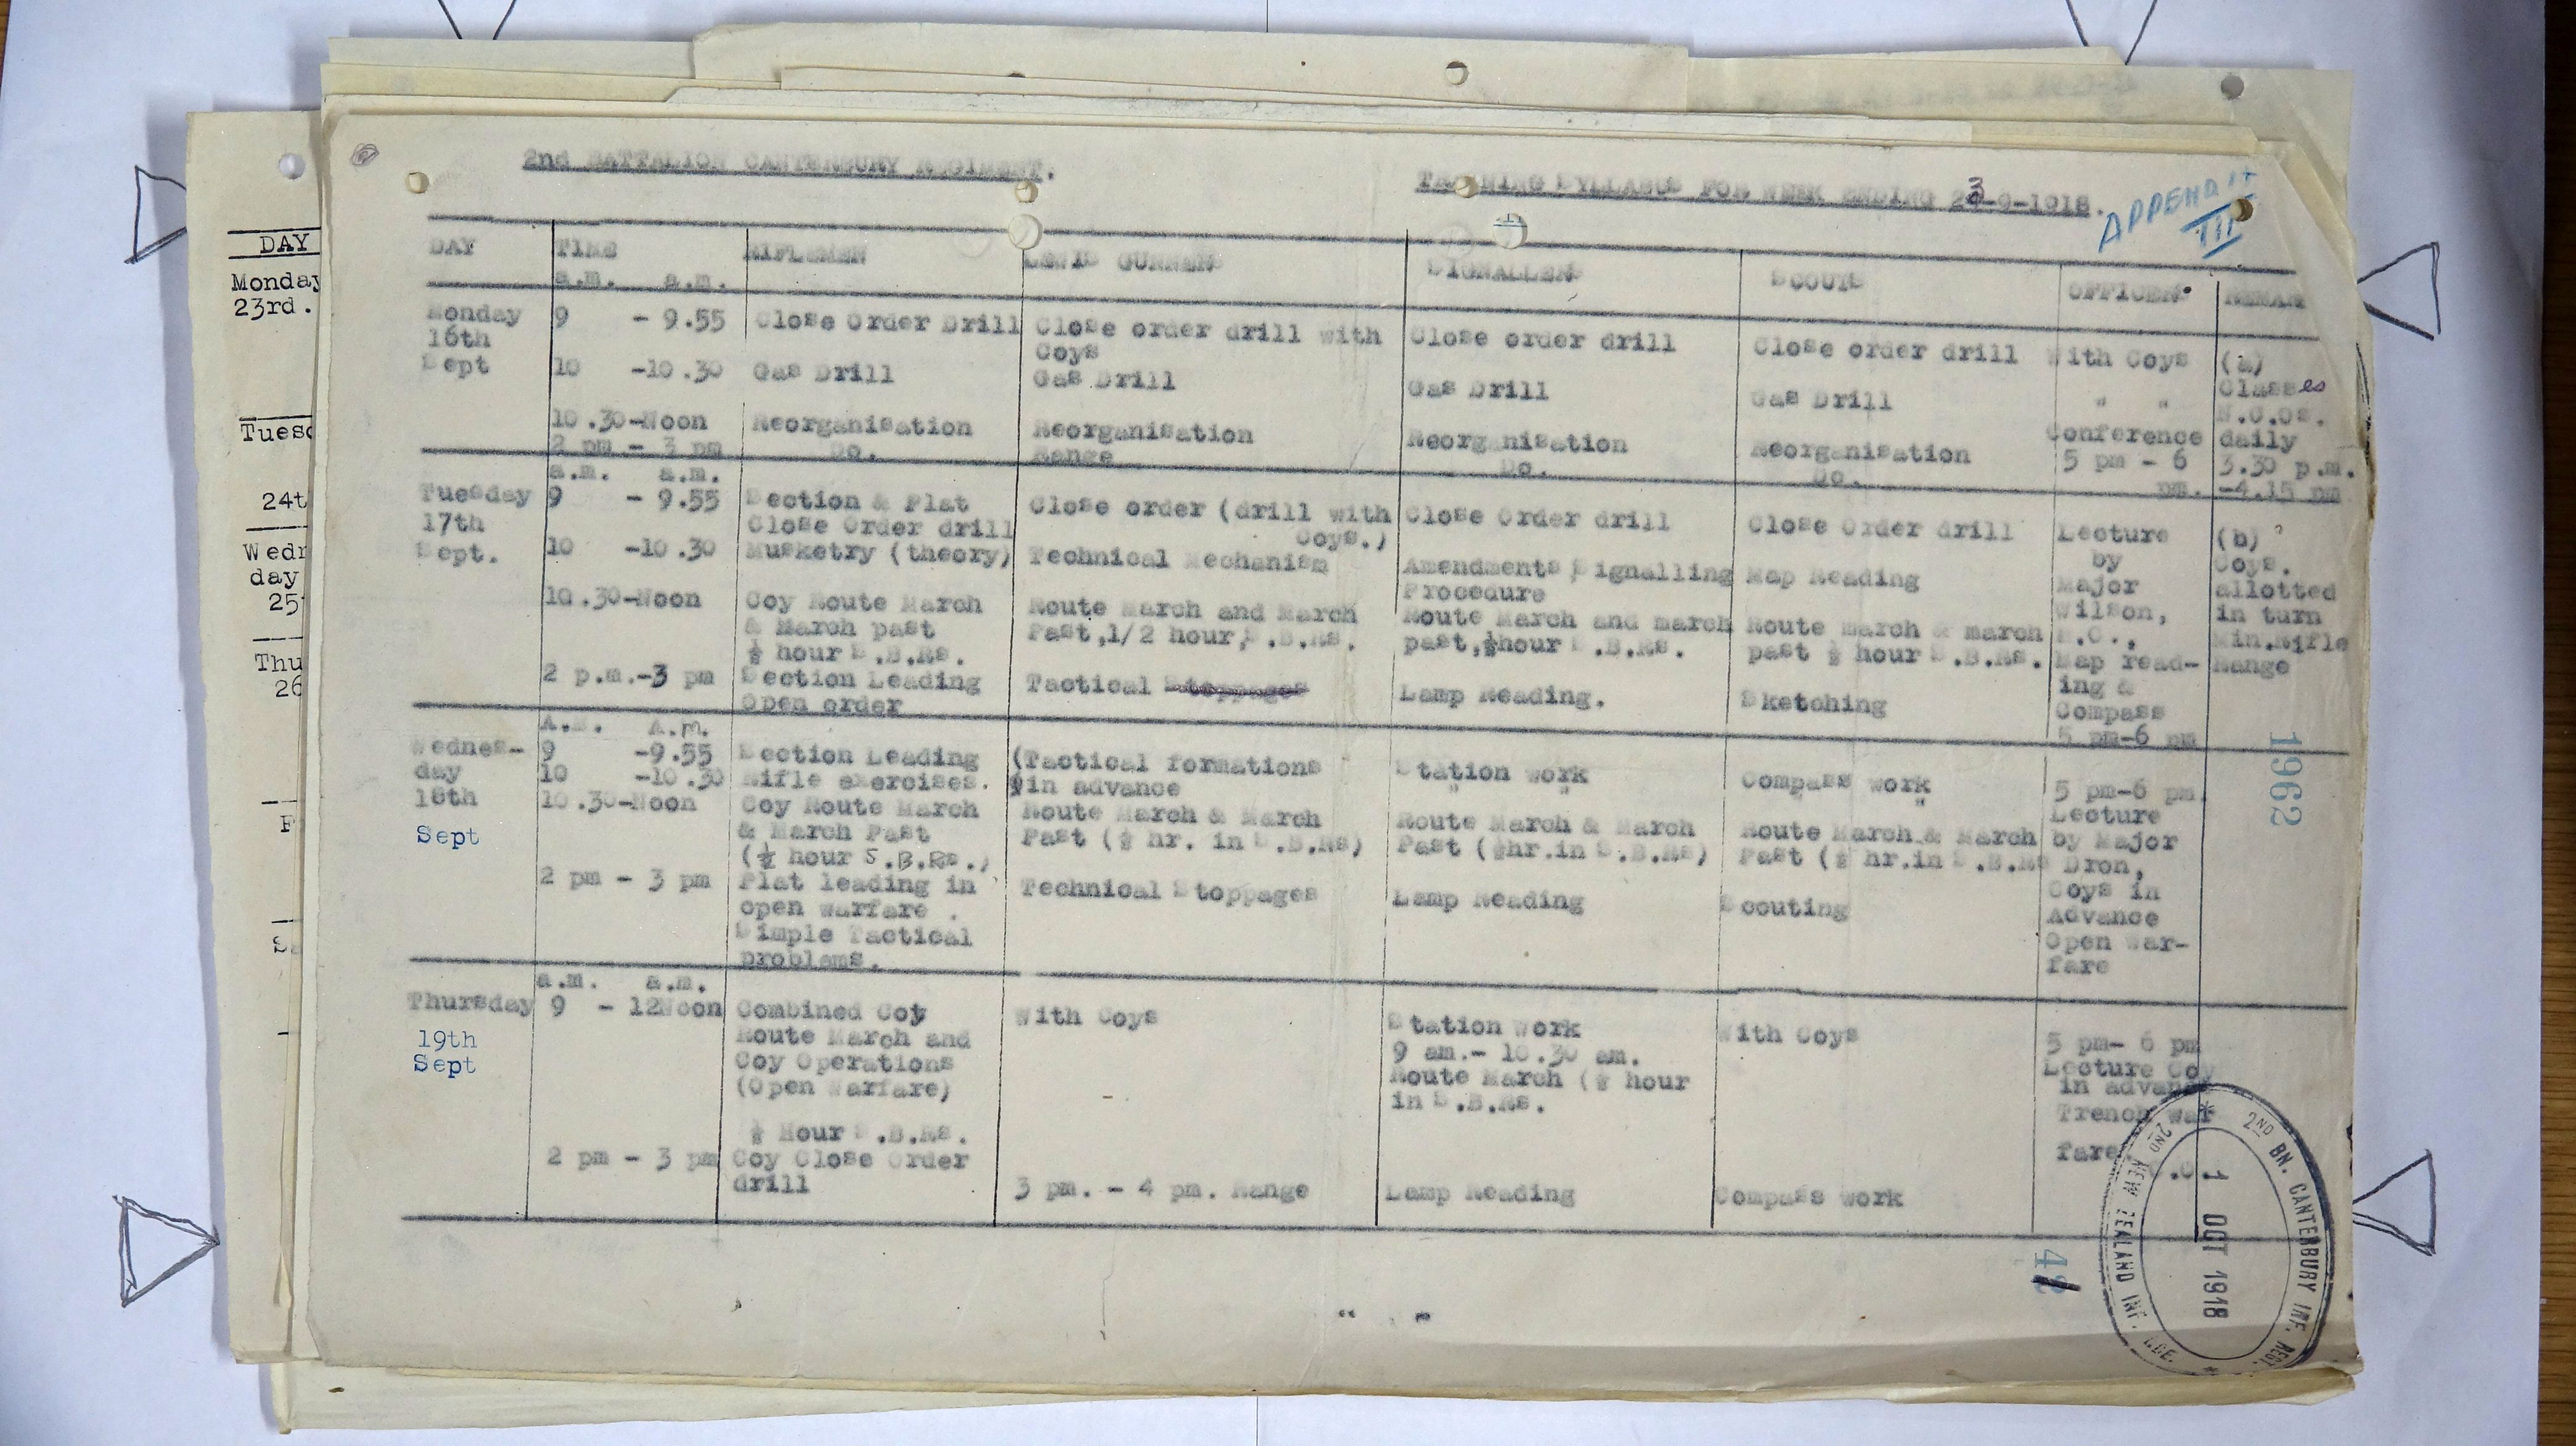 2nd BATTALION CANTERBURY REGIMENT.
TRAINING SYLLABUS FOR WEEK ENDING 23-9-1918.
APPENDIX
III
DAY TIME RIFLEMEN LEWIS GUNNERS SIGNALLERS SCOUTS OFFICERS REMARKS
a.m. a.m.
Monday 9 - 9.55 Close Order Drill Close order drill with Close order drill Close order drill With Coys (a)
16th Coys Classes
Sept 10 -10.30 Gas Drill Gas Drill Gas Drill Gas Drill " " N.C.Os.
10.30-Noon Reorganisation Reorganisation Reorganisation Reorganisation Conference daily
2 pm - 3 pm Do. Range Do. Do. 5 pm - 6 3.30 p.m.
pm. -4.15 pm
a.m. a.m.
Tuesday 9 - 9.55 Section & Plat Close order (drill with Close Order drill Close Order drill Lecture (b)
17th Close Order drill Coys.) by Coys.
Sept. 10 -10.30 Musketry (theory) Technical Mechanism Amendments Signalling Map Reading Major allotted
Procedure Wilson, in turn
10.30-Noon Coy Route March Route March and March Route March and march Route march & march Min.Rifle
& March past Past,1/2 hour, S.B.Rs. past,½hour S.B.Rs. past ½ hour S.B.Rs. Map read- Range
½ hour S.B.Rs. ing &
2 p.m.-3 pm Section Leading Tactical Stoppages Lamp Reading. Sketching Compass
Open order 5 pm-6 pm
A.M. A.m.
Wednes- 9 -9.55 Section Leading (Tactical formations Station work Compass work 5 pm-6 pm
day 10 -10.30 Rifle exercises. (in advance " " " Lecture
18th 10.30-Noon Coy Route March Route March & March Route March & March Route March & March by Major
Sept & March Past Past (½ hr. in S.B.Rs) Past (½hr.in S.B.Rs) Past (½ hr.in S.B.Rs Dron,
(½ hour S.B.Rs.) Coys in
2 pm - 3 pm Plat leading in Technical Stoppages Lamp Reading Scouting Advance
open warfare . Open War-
Simple Tactical fare
problems.
a.m. a.m.
Thursday 9 - 12Noon Combined Coy With Coys Station Work With Coys 5 pm- 6 pm
19th Route March and 9 am.- 10.30 am. Lecture Coy
Sept Coy Operations Route March (½ hour in advance
(Open Warfare) in S.B.Rs. Trench war
½ Hour S.B.Rs. fare.
2 pm - 3 pm Coy Close Order
drill 3 pm. - 4 pm. Range Lamp Reading Compass work
1962
2ND BN. CANTERBURY INF. REGT.
1 OCT 1918
2ND NEW ZEALAND INF. BDE.
DAY
Monday
23rd.
Tuesd
24t
Wedn
day
25
Thu
26
F
Sa